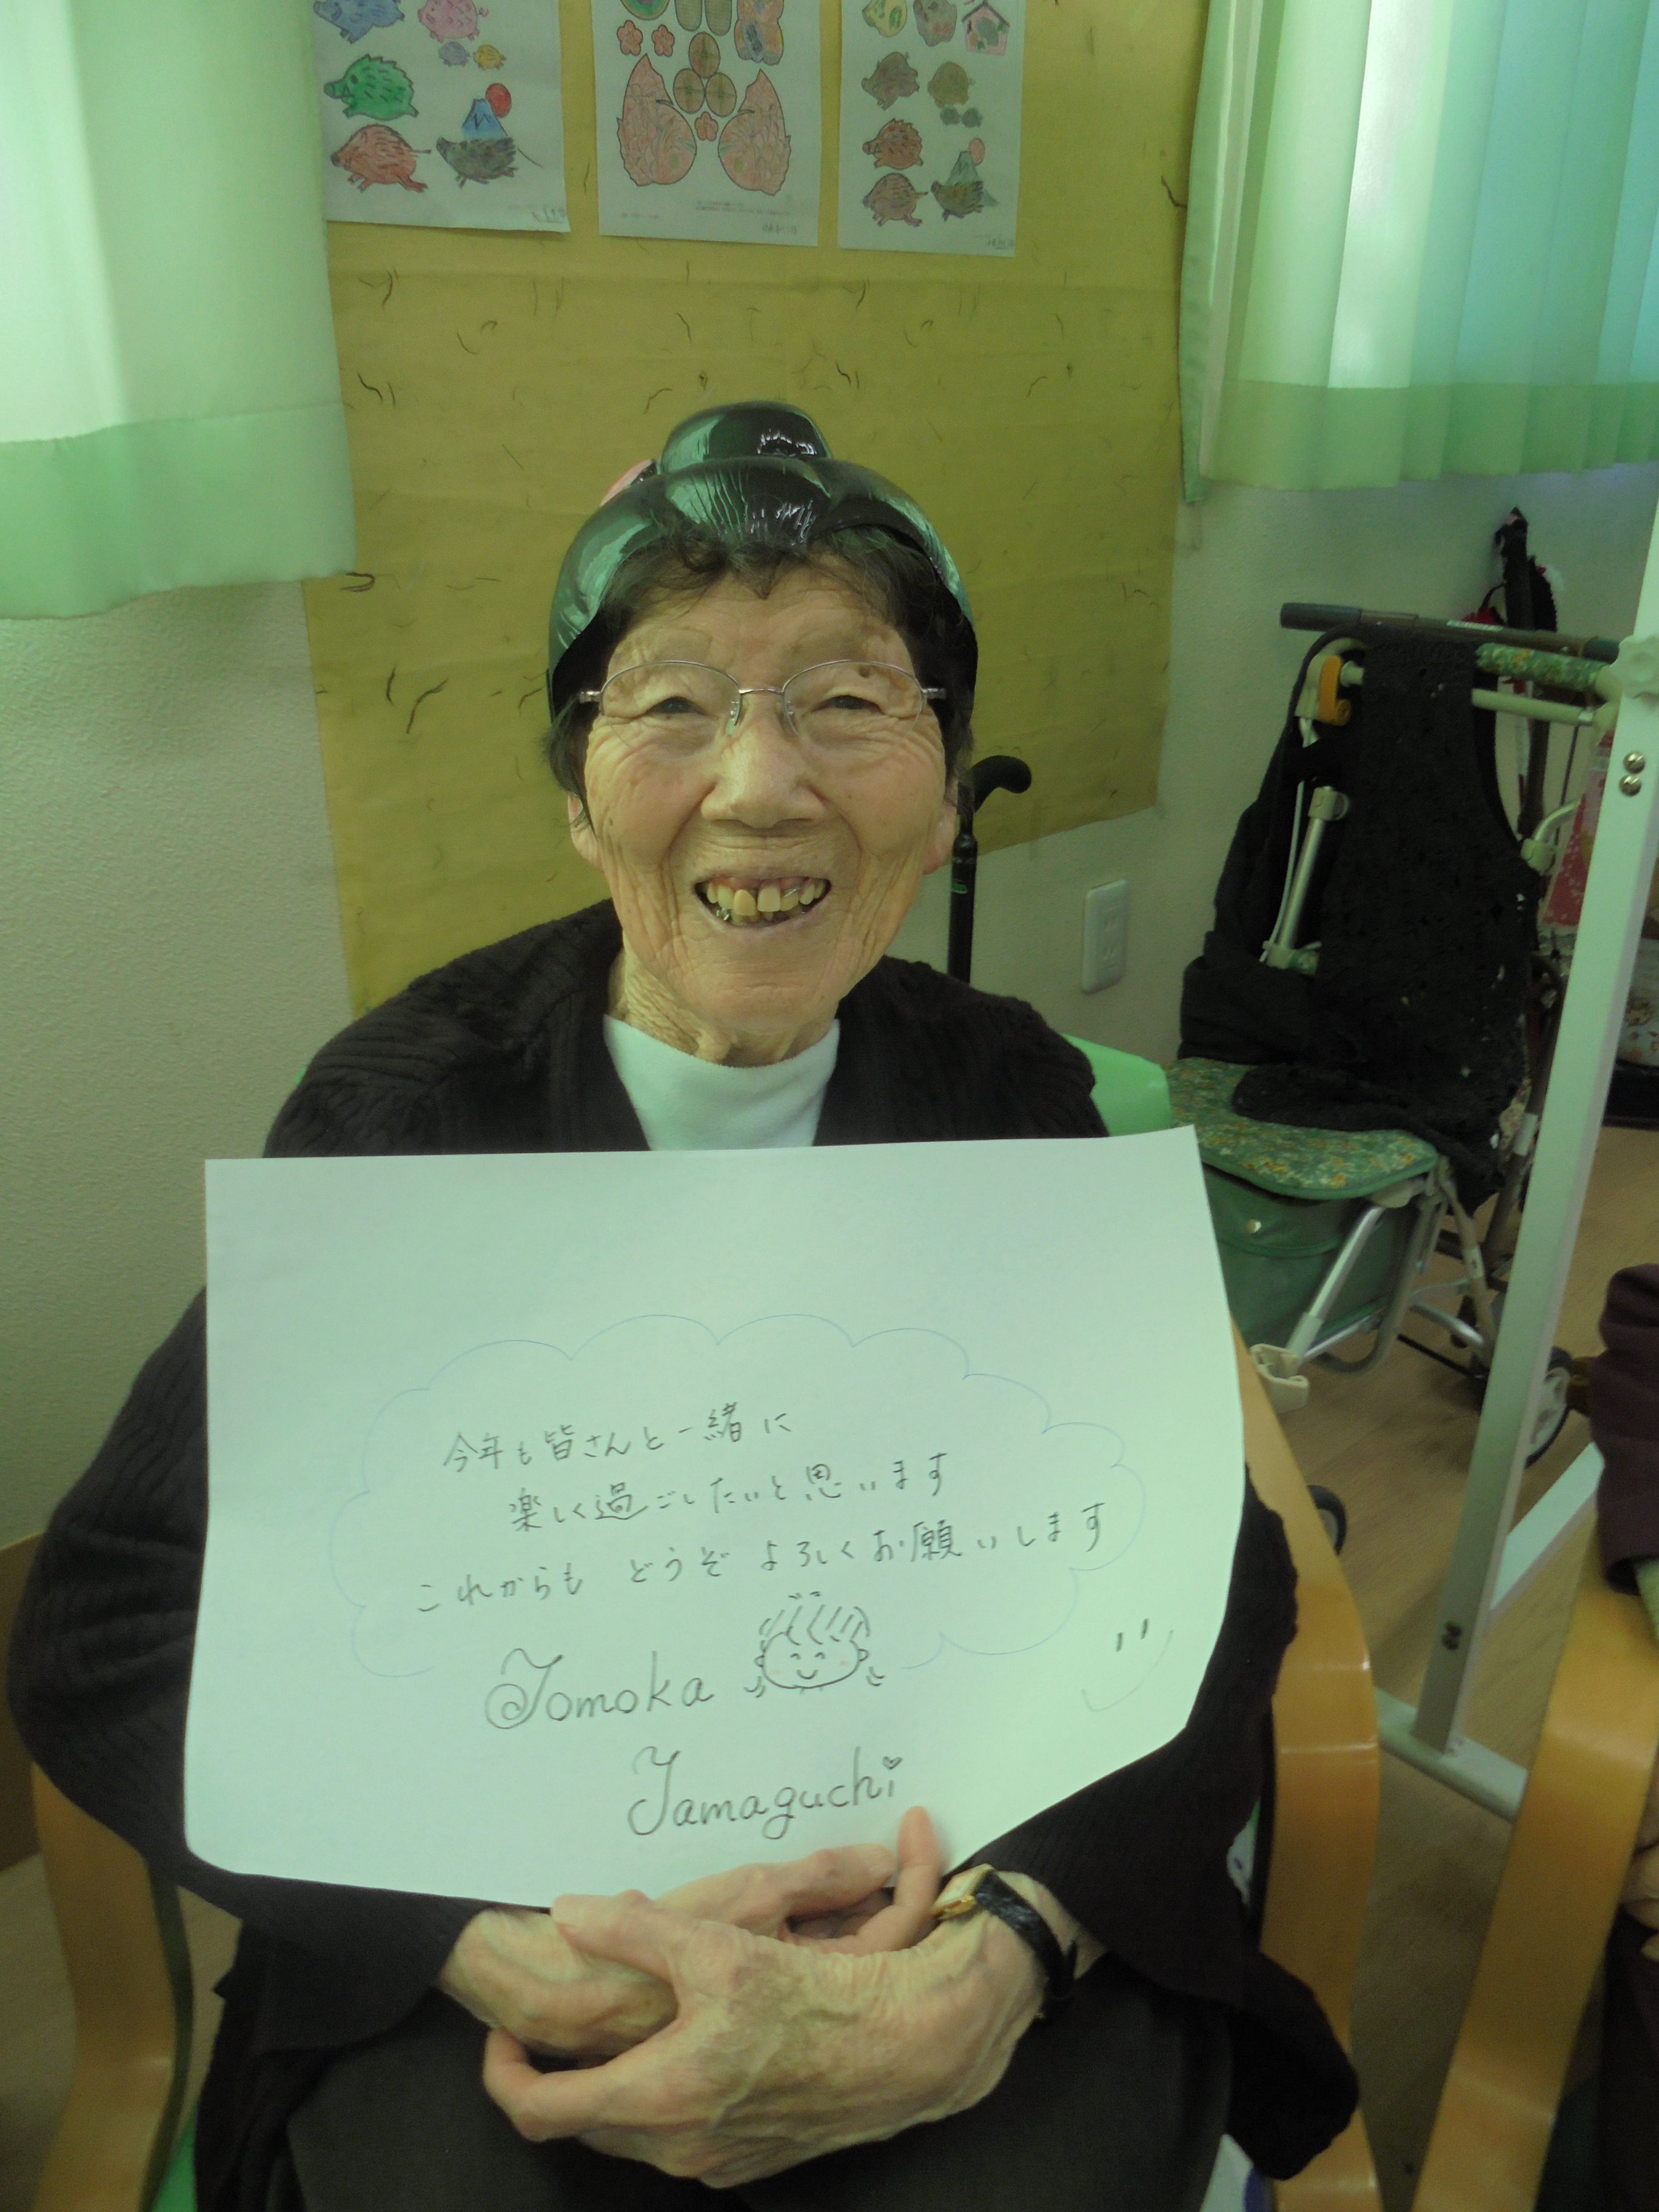 今年も皆さんと一緒に
楽しく過ごしたいと思います
これからも どうぞ よろしくお願いします
Tomoka
Yamaguchi